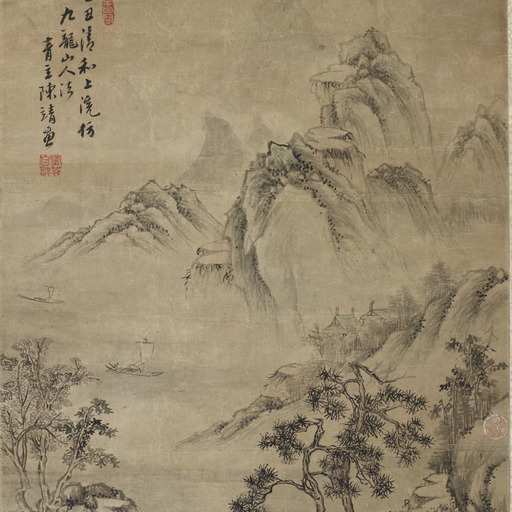 丑清和上浣仿
九龍山人法
青立陳靖畫